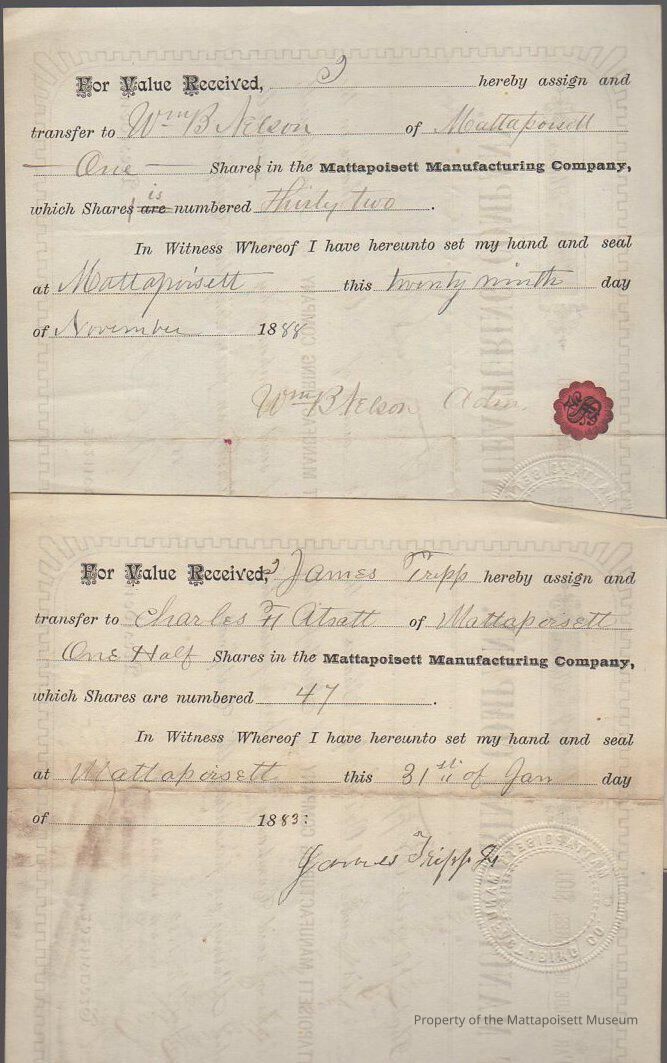 For Value Received, I hereby assign and
transfer to Wm B Nelson of Mattapoisett
One Share in the Mattapoisett Manufacturing Company,
is
which Shares are numbered Thirty two .
In Witness Whereof I have hereunto set my hand and seal
at Mattapoisett this twenty ninth day
of November 1888
Wm B Nelson Adm.
For Value Received, I James Tripp hereby assign and
transfer to Charles H Atsatt of Mattapoisett
One Half Shares in the Mattapoisett Manufacturing Company,
which Shares are numbered 47 .
In Witness Whereof I have hereunto set my hand and seal
at Mattapoisett this 31st of Jan day
of 1883:
James Tripp Jr
Property of the Mattapoisett Museum